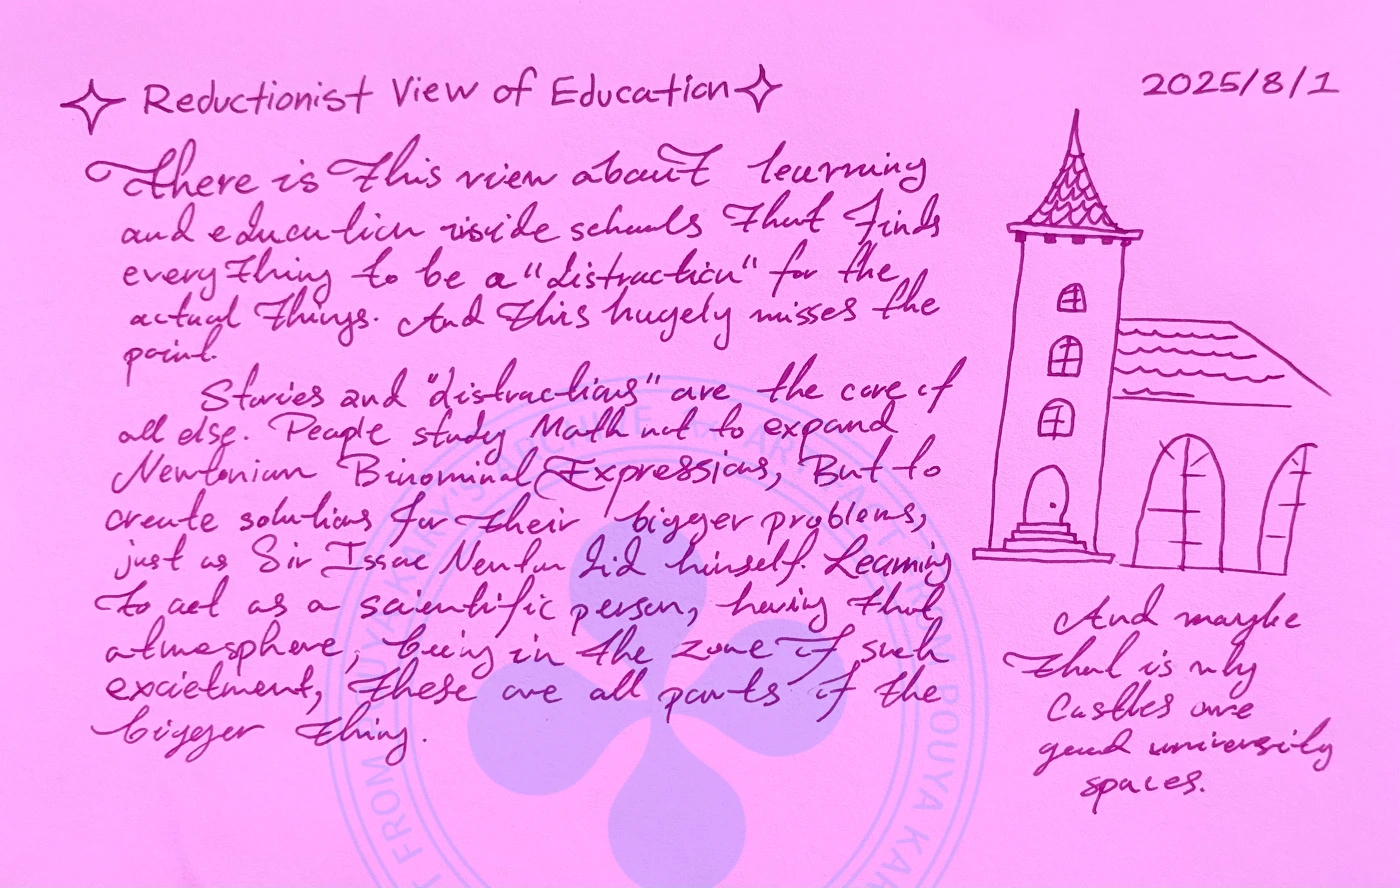 Reductionist View of Education
2025/8/1
There is this view about learning
and education inside schools that finds
everything to be a "distraction" for the
actual things. And this hugely misses the
point.
Stories and "distractions" are the core of
all else. People study Math not to expand
Newtonian Binominal Expressions, But to
create solutions for their bigger problems,
just as Sir Issac Newton did himself. Learning
to act as a scientific person, having that
atmosphere, being in the zone of such
excietment, these are all parts of the
bigger thing.
And maybe
that is why
Castles are
good university
spaces.
ARCHIVE
ART
FROM POUYA KAR
FROM
POUYA KARY'S